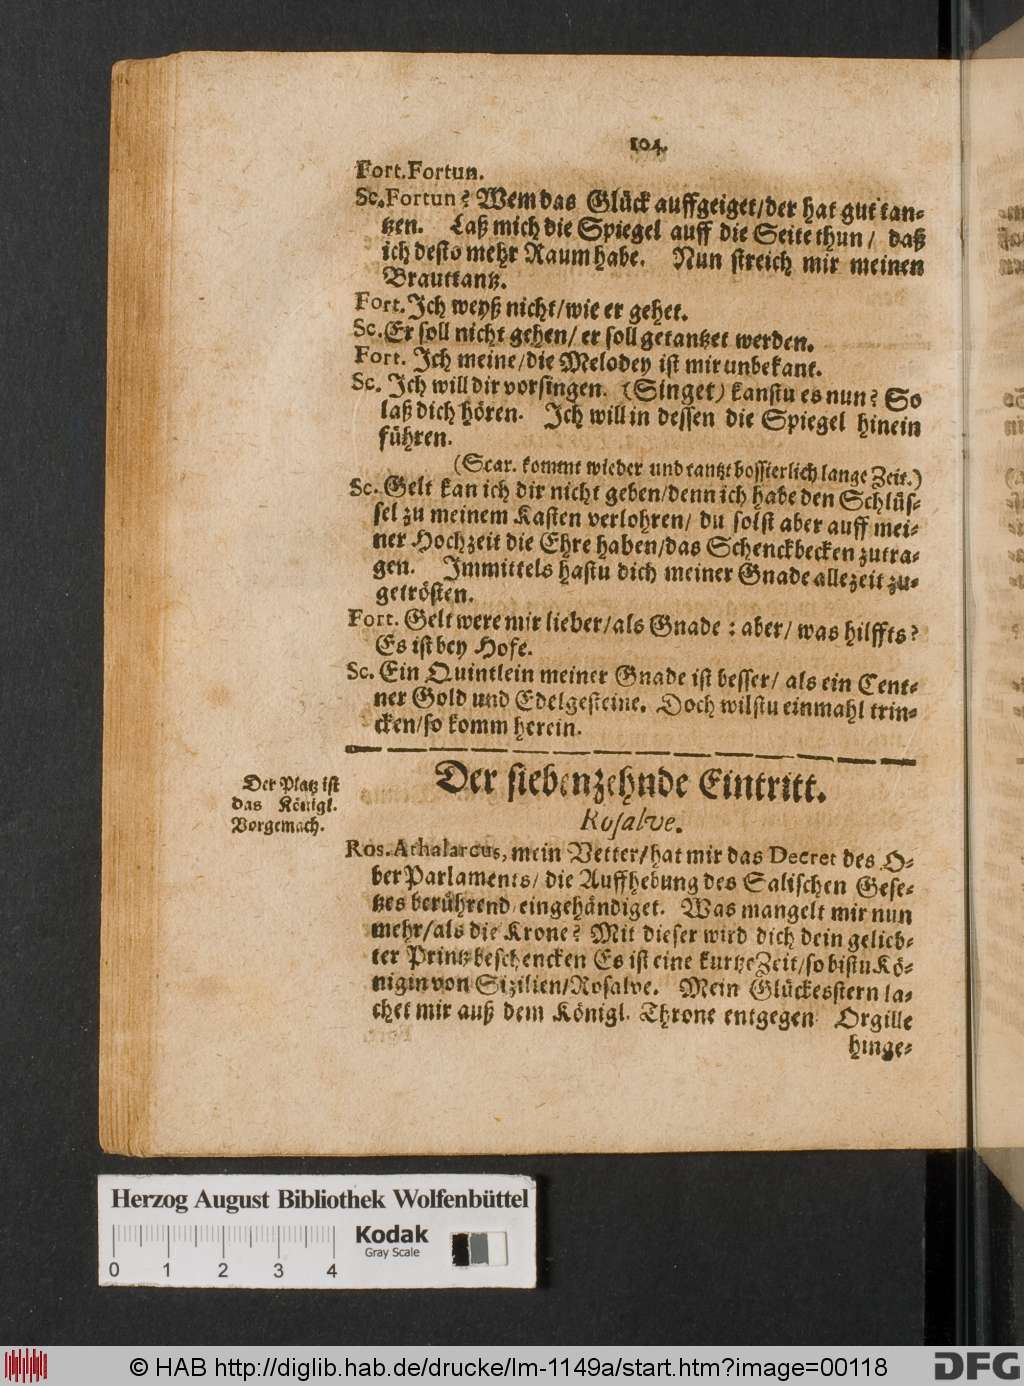 104.
Fort. Fortun.
Sc. Fortun? Wem das Glück auffgeiget/der hat gut tan-
tzen. Laß mich die Spiegel auff die Seite thun/ daß
ich desto mehr Raum habe. Nun streich mir meinen
Brauttantz.
Fort. Ich weyß nicht/wie er gehet.
Sc. Er soll nicht gehen/ er soll getantzet werden.
Fort. Ich meine/die Melodey ist mir unbekant.
Sc. Ich will dir vorsingen. (Singet) kanstu es nun? So
laß dich hören. Ich will in dessen die Spiegel hinein
führen.
(Scar. kommt wieder und tantzt bossierlich lange Zeit.)
Sc. Gelt kan ich dir nicht geben/denn ich habe den Schlüs-
sel zu meinem Kasten verlohren/ du solst aber auff mei-
ner Hochzeit die Ehre haben/das Schenckbecken zutra-
gen. Immittels hastu dich meiner Gnade allezeit zu-
getrösten.
Fort. Gelt were mir lieber/als Gnade: aber/ was hilffts?
Es ist bey Hofe.
Sc. Ein Quintlein meiner Gnade ist besser/ als ein Cent-
ner Gold und Edelgesteine. Doch wilstu einmahl trin-
cken/so komm herein.
Der siebenzehnde Eintritt.
Der Platz ist
das Königl.
Vorgemach.
Rosalve.
Ros. Athalarcus, mein Vetter/hat mir das Decret des O-
ber Parlaments/ die Auffhebung des Salischen Gese-
tzes berührend/eingehändiget. Was mangelt mir nun
mehr/als die Krone? Mit dieser wird dich dein gelieb-
ter Printz beschencken Es ist eine kurtze Zeit/so bistu Kö-
nigin von Sizilien/Rosalve. Mein Glückesstern la-
chet mir auß dem Königl. Throne entgegen Orgille
hinge-
Herzog August Bibliothek Wolfenbüttel
Kodak
Gray Scale
0 1 2 3 4
© HAB http://diglib.hab.de/drucke/lm-1149a/start.htm?image=00118
DFG